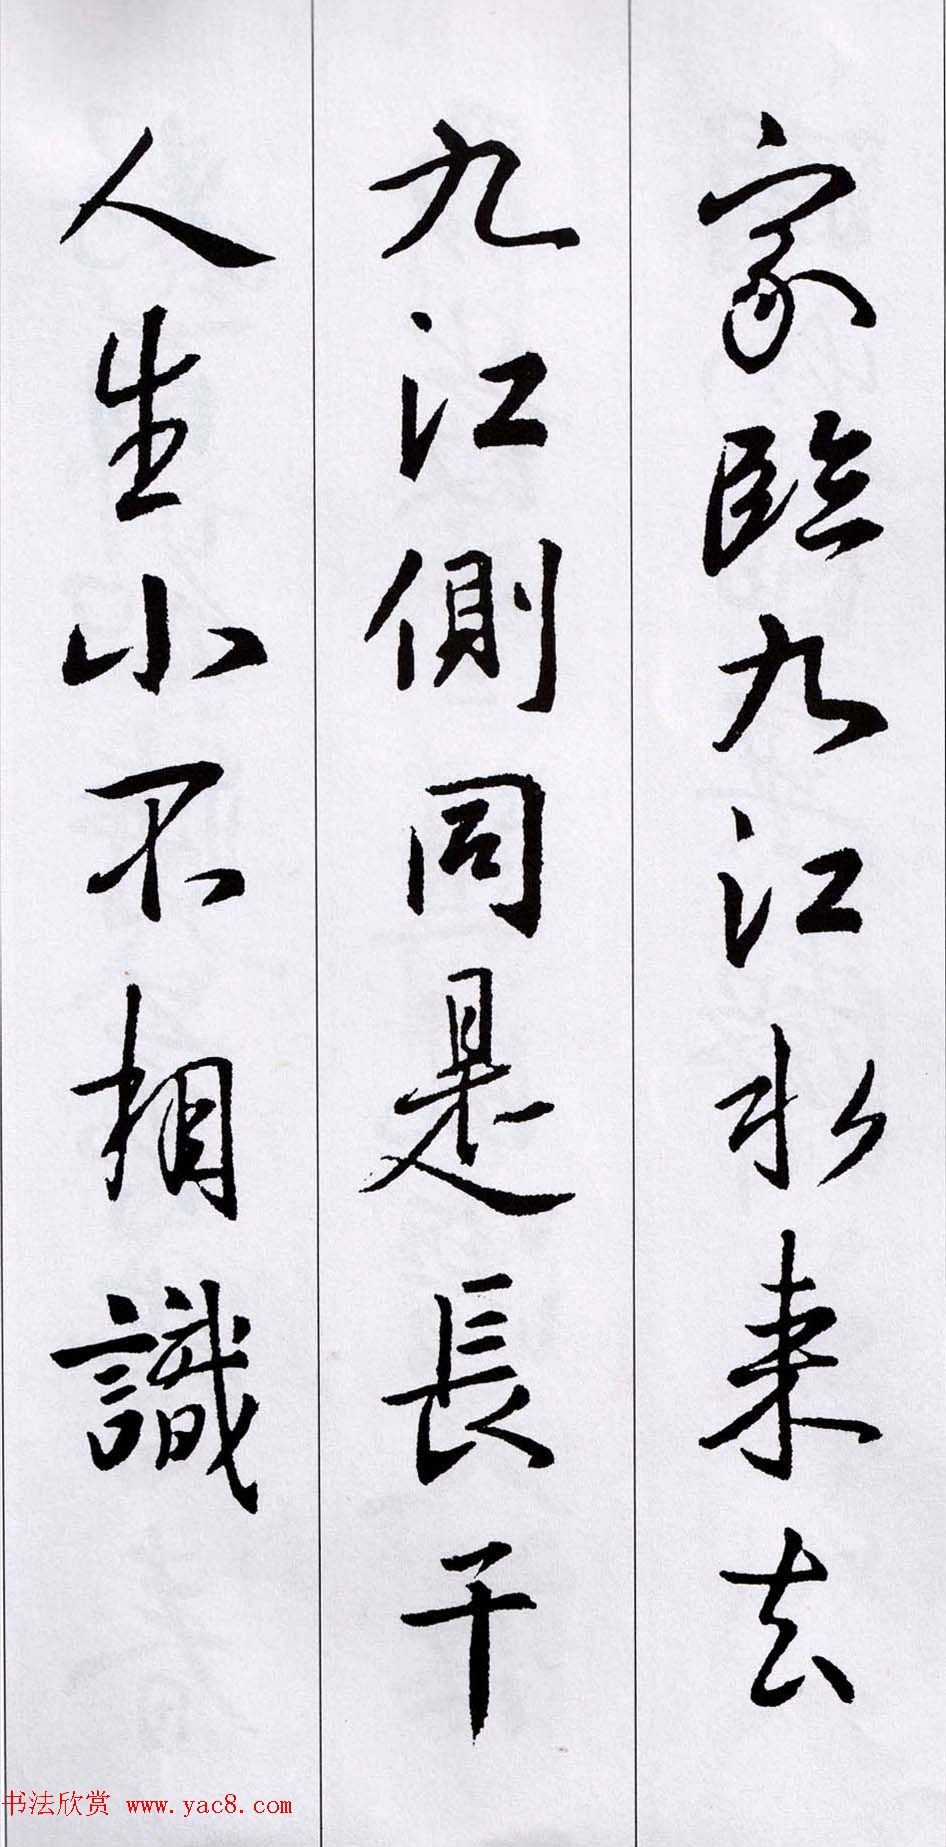 家臨九江水来去
九江側同是長干
人生小不相識
书法欣赏 www.yac8.com